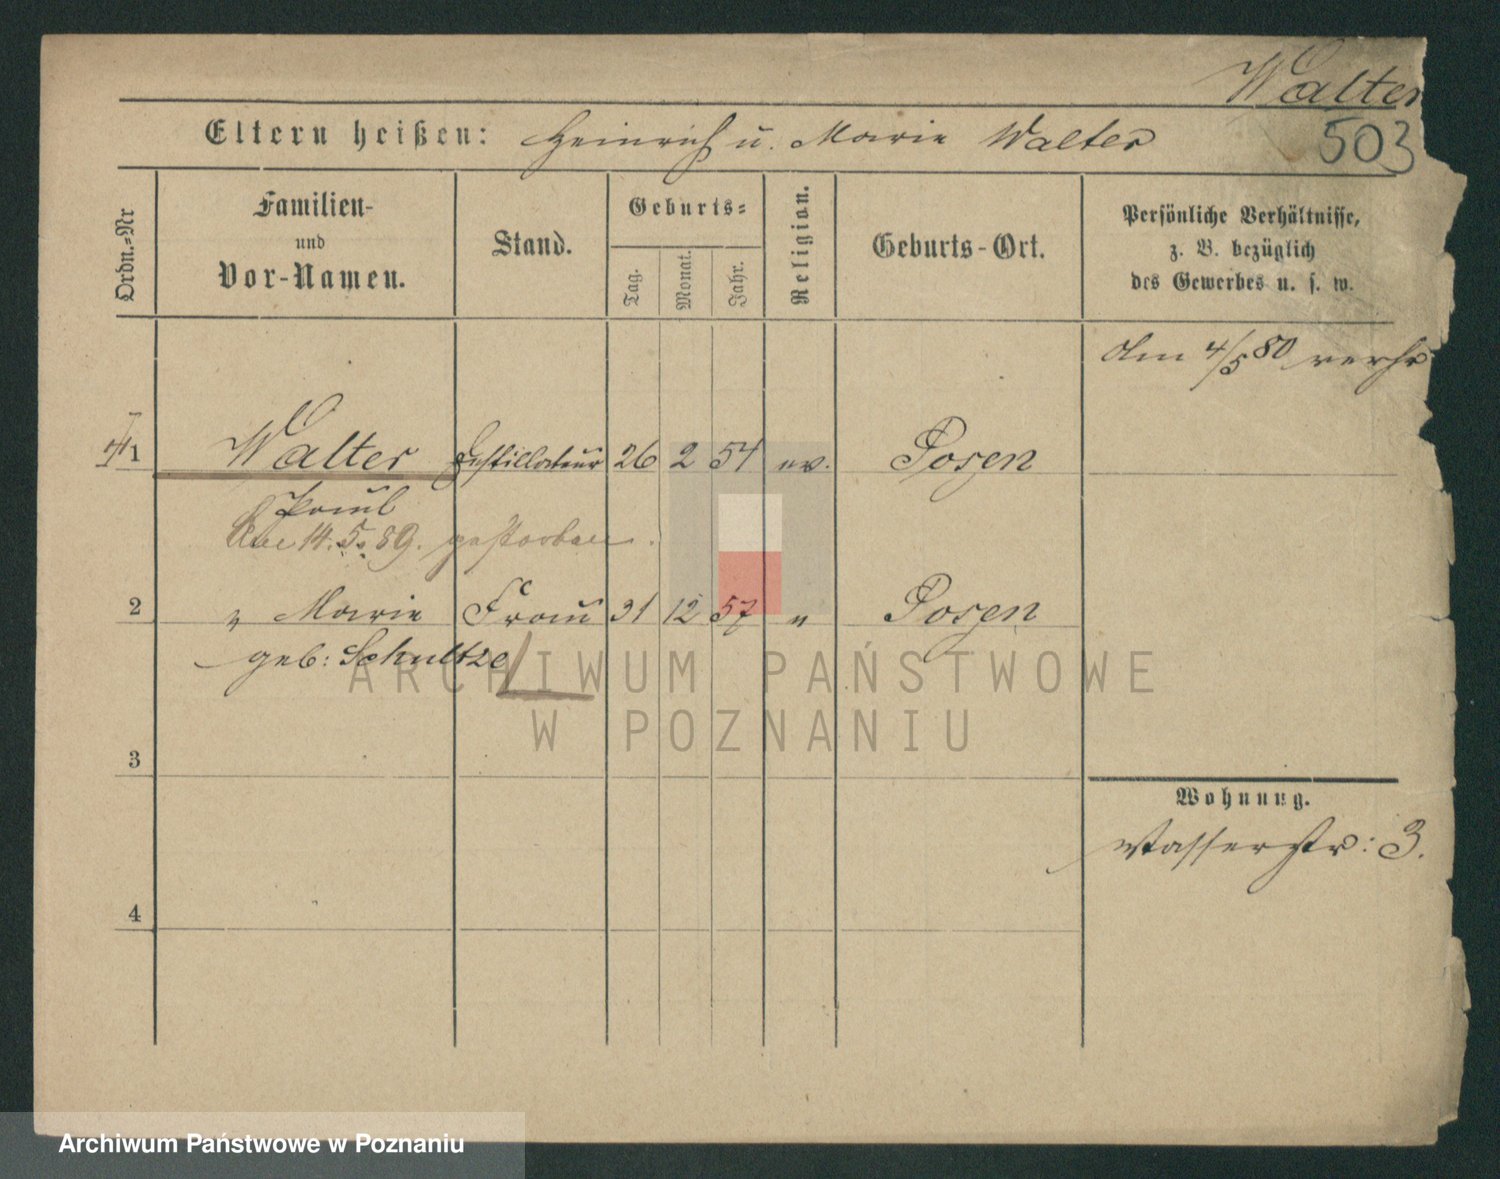 Walter
503
Eltern heißen: Heinrich u. Marie Walter
Ordn.-Nr
Familien-
und
Vor-Namen.
Stand.
Geburts-
Tag.
Monat.
Jahr.
Religion.
Geburts-Ort.
Persönliche Verhältnisse,
z. B. bezüglich
des Gewerbes u. s. w.
Am 4/5 80 verhr
1 Walter Destillateur 26 2 54 ev. Posen
Paul
Am 14.5.89. gestorben.
2 " Marie Frau 31 12 57 " Posen
geb: Schultze
3
Wohnung.
Wasserstr: 3.
4
ARCHIWUM PAŃSTWOWE
W POZNANIU
Archiwum Państwowe w Poznaniu